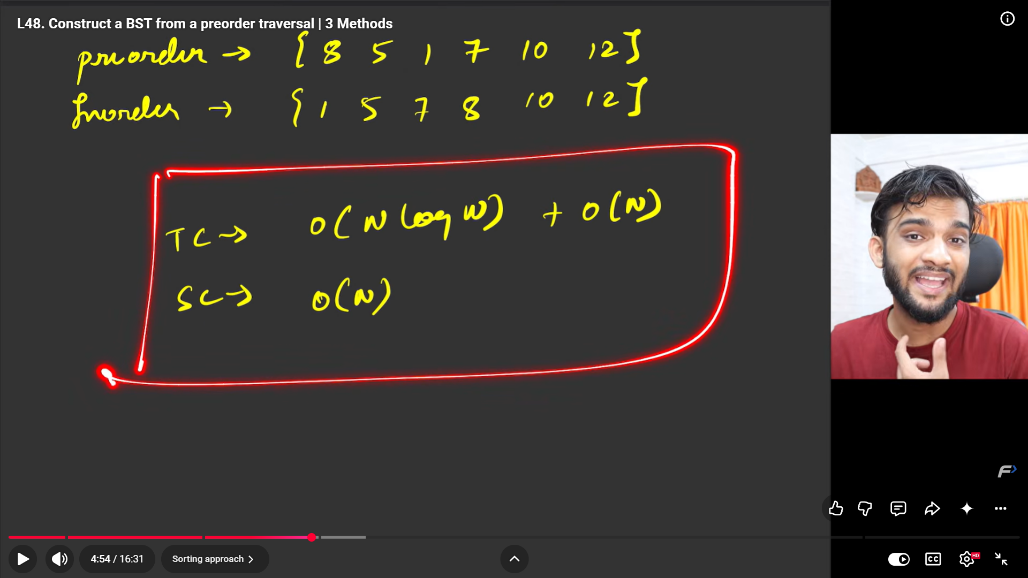 L48. Construct a BST from a preorder traversal | 3 Methods
preorder → { 8 5 1 7 10 12 }
Inorder → { 1 5 7 8 10 12 }
TC → O(N log N) + O(N)
SC → O(N)
4:54 / 16:31 Sorting approach > CC HD